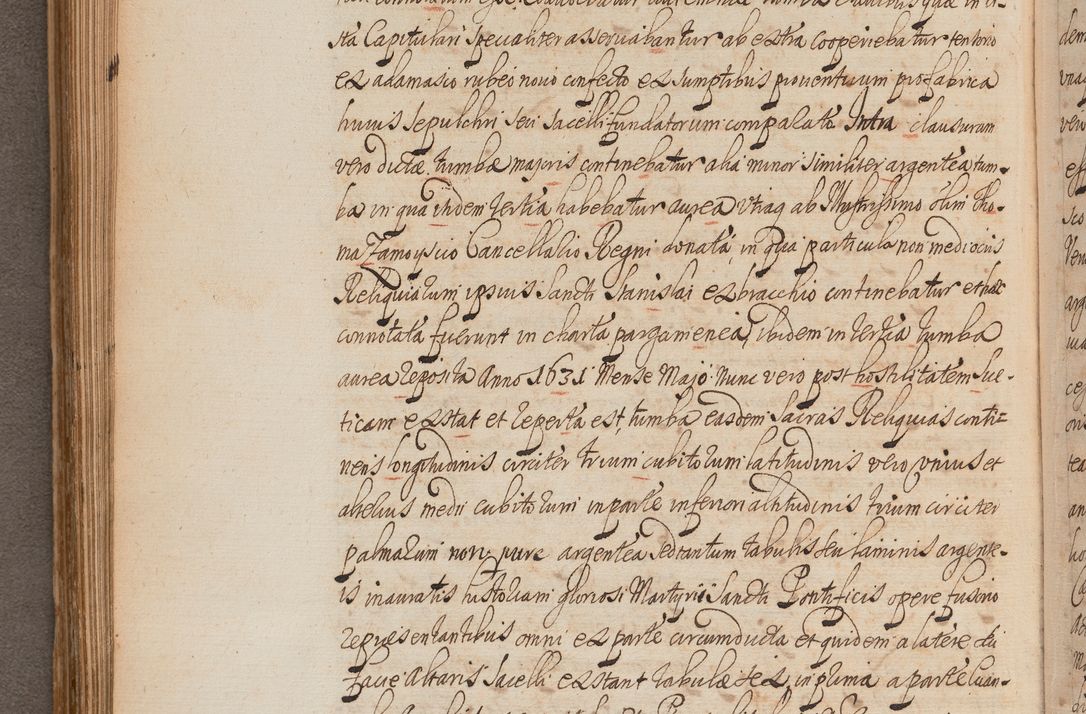 sta Capitulari specialiter asservabantur ab extra cooperiebatur tentorio
ex adamasco rubeo novo confecto ex sumptibus proventuum pro fabrica
huius Sepulchri seu Sacelli fundatorum comparato Intra clausuram
vero dictæ tumbæ majoris continebatur alia minor similiter argentea tum-
ba in qua ibidem tertia habebatur aurea utraq ab Illustrissimo olim Tho-
ma Zamoyscio Cancellario Regni donata, in qua particula non mediocris
Reliquiarum ipsius Sancti Stanislai ex bracchio continebatur et hæc
connotata fuerunt in charta pargamenea, ibidem in tertia tumba
aurea reposita Anno 1631 Mense Majo. Nunc vero post hostilitatem Sue-
ticam exstat et reperta est, tumba easdem Sacras Reliquias conti=
nens longitudinis circiter trium cubitorum latitudinis vero unius et
alterius medii cubitorum in parte inferiori altitudinis trium circiter
palmarum non pure argentea sed tantum tabulis seu laminis argente-
is inauratis historiam gloriosi Martyrii Sancti Pontificis opere fusorio
repræsentantibus omni ex parte circumducta et quidem a latere du
faue Altaris Sacelli exstant tabulæ sex, in prima a parte Euan-